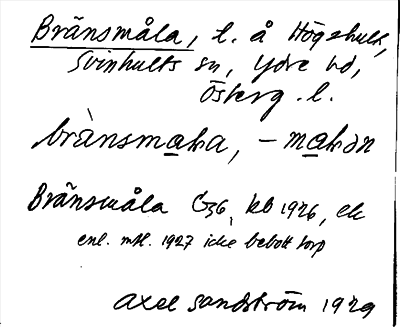 Bränsmåla, t. å Högehult,
Svinhults sn, Ydre hd,
Österg. l.
brànsmaka, – makən
Bränsmåla G36, kb 1926, ek
enl. mtl. 1927 icke bebott torp
Axel Sandström 1929